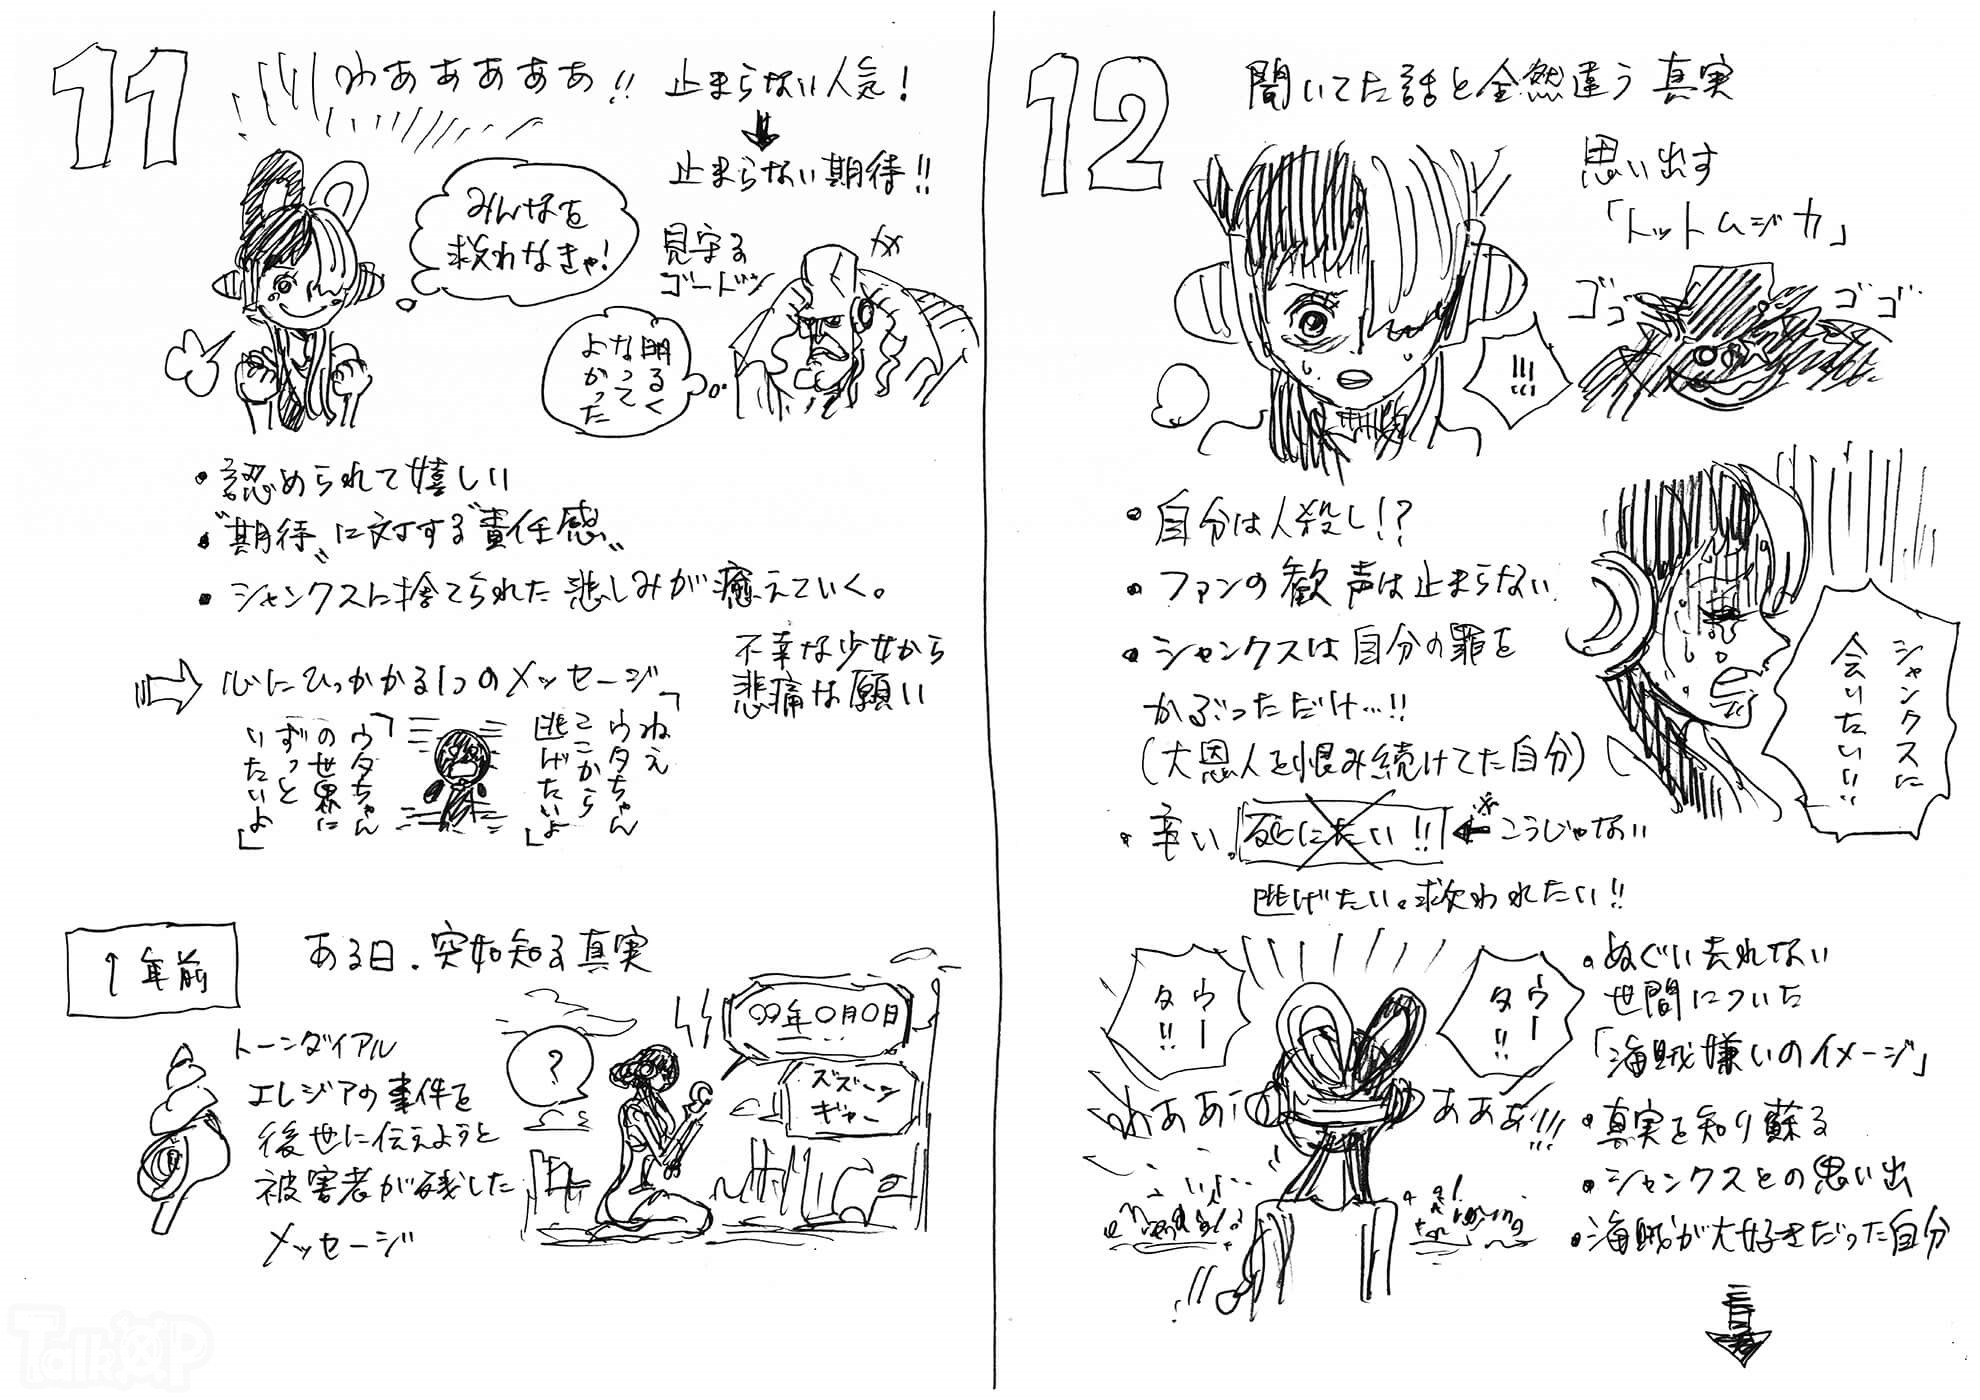 11
わぁぁぁぁぁ!!
止まらない人気!
止まらない期待!!
みんなを
救わなきゃ!
見守る
ゴードン
明るく
なって
よかった
・認められて嬉しい
・"期待"に対する"責任感"
・シャンクスに捨てられた悲しみが癒えていく。
心にひっかかる1つのメッセージ
不幸な少女から
悲痛な願い
「ねえ
ウタちゃん
ここから
逃げたいよ」
「ウタちゃん
の世界に
ずっと
いたいよ」
1年前
ある日、突如知る真実
トーンダイアル
エレジアの事件を
後世に伝えようと
被害者が残した
メッセージ
?
〇〇年〇月〇日
ズズーン
ギャー
12
聞いてた話と全然違う真実
思い出す
「トットムジカ」
ゴゴ
ゴゴ
!!!
・自分は人殺し!?
・ファンの歓声は止まらない
・シャンクスは自分の罪を
かぶっただけ…!!
(大恩人を恨み続けてた自分)
シャンクスに
会いたい!!
・辛い。死にたい!! ※こうじゃない
逃げたい。救われたい!!
ウー
タ!!
ウー
タ!!
わぁぁ
ぁぁぁ!!!
・ぬぐい去れない
世間についた
「海賊嫌いのイメージ」
・真実を知り蘇る
・シャンクスとの思い出
・海賊が大好きだった自分
Talk OP